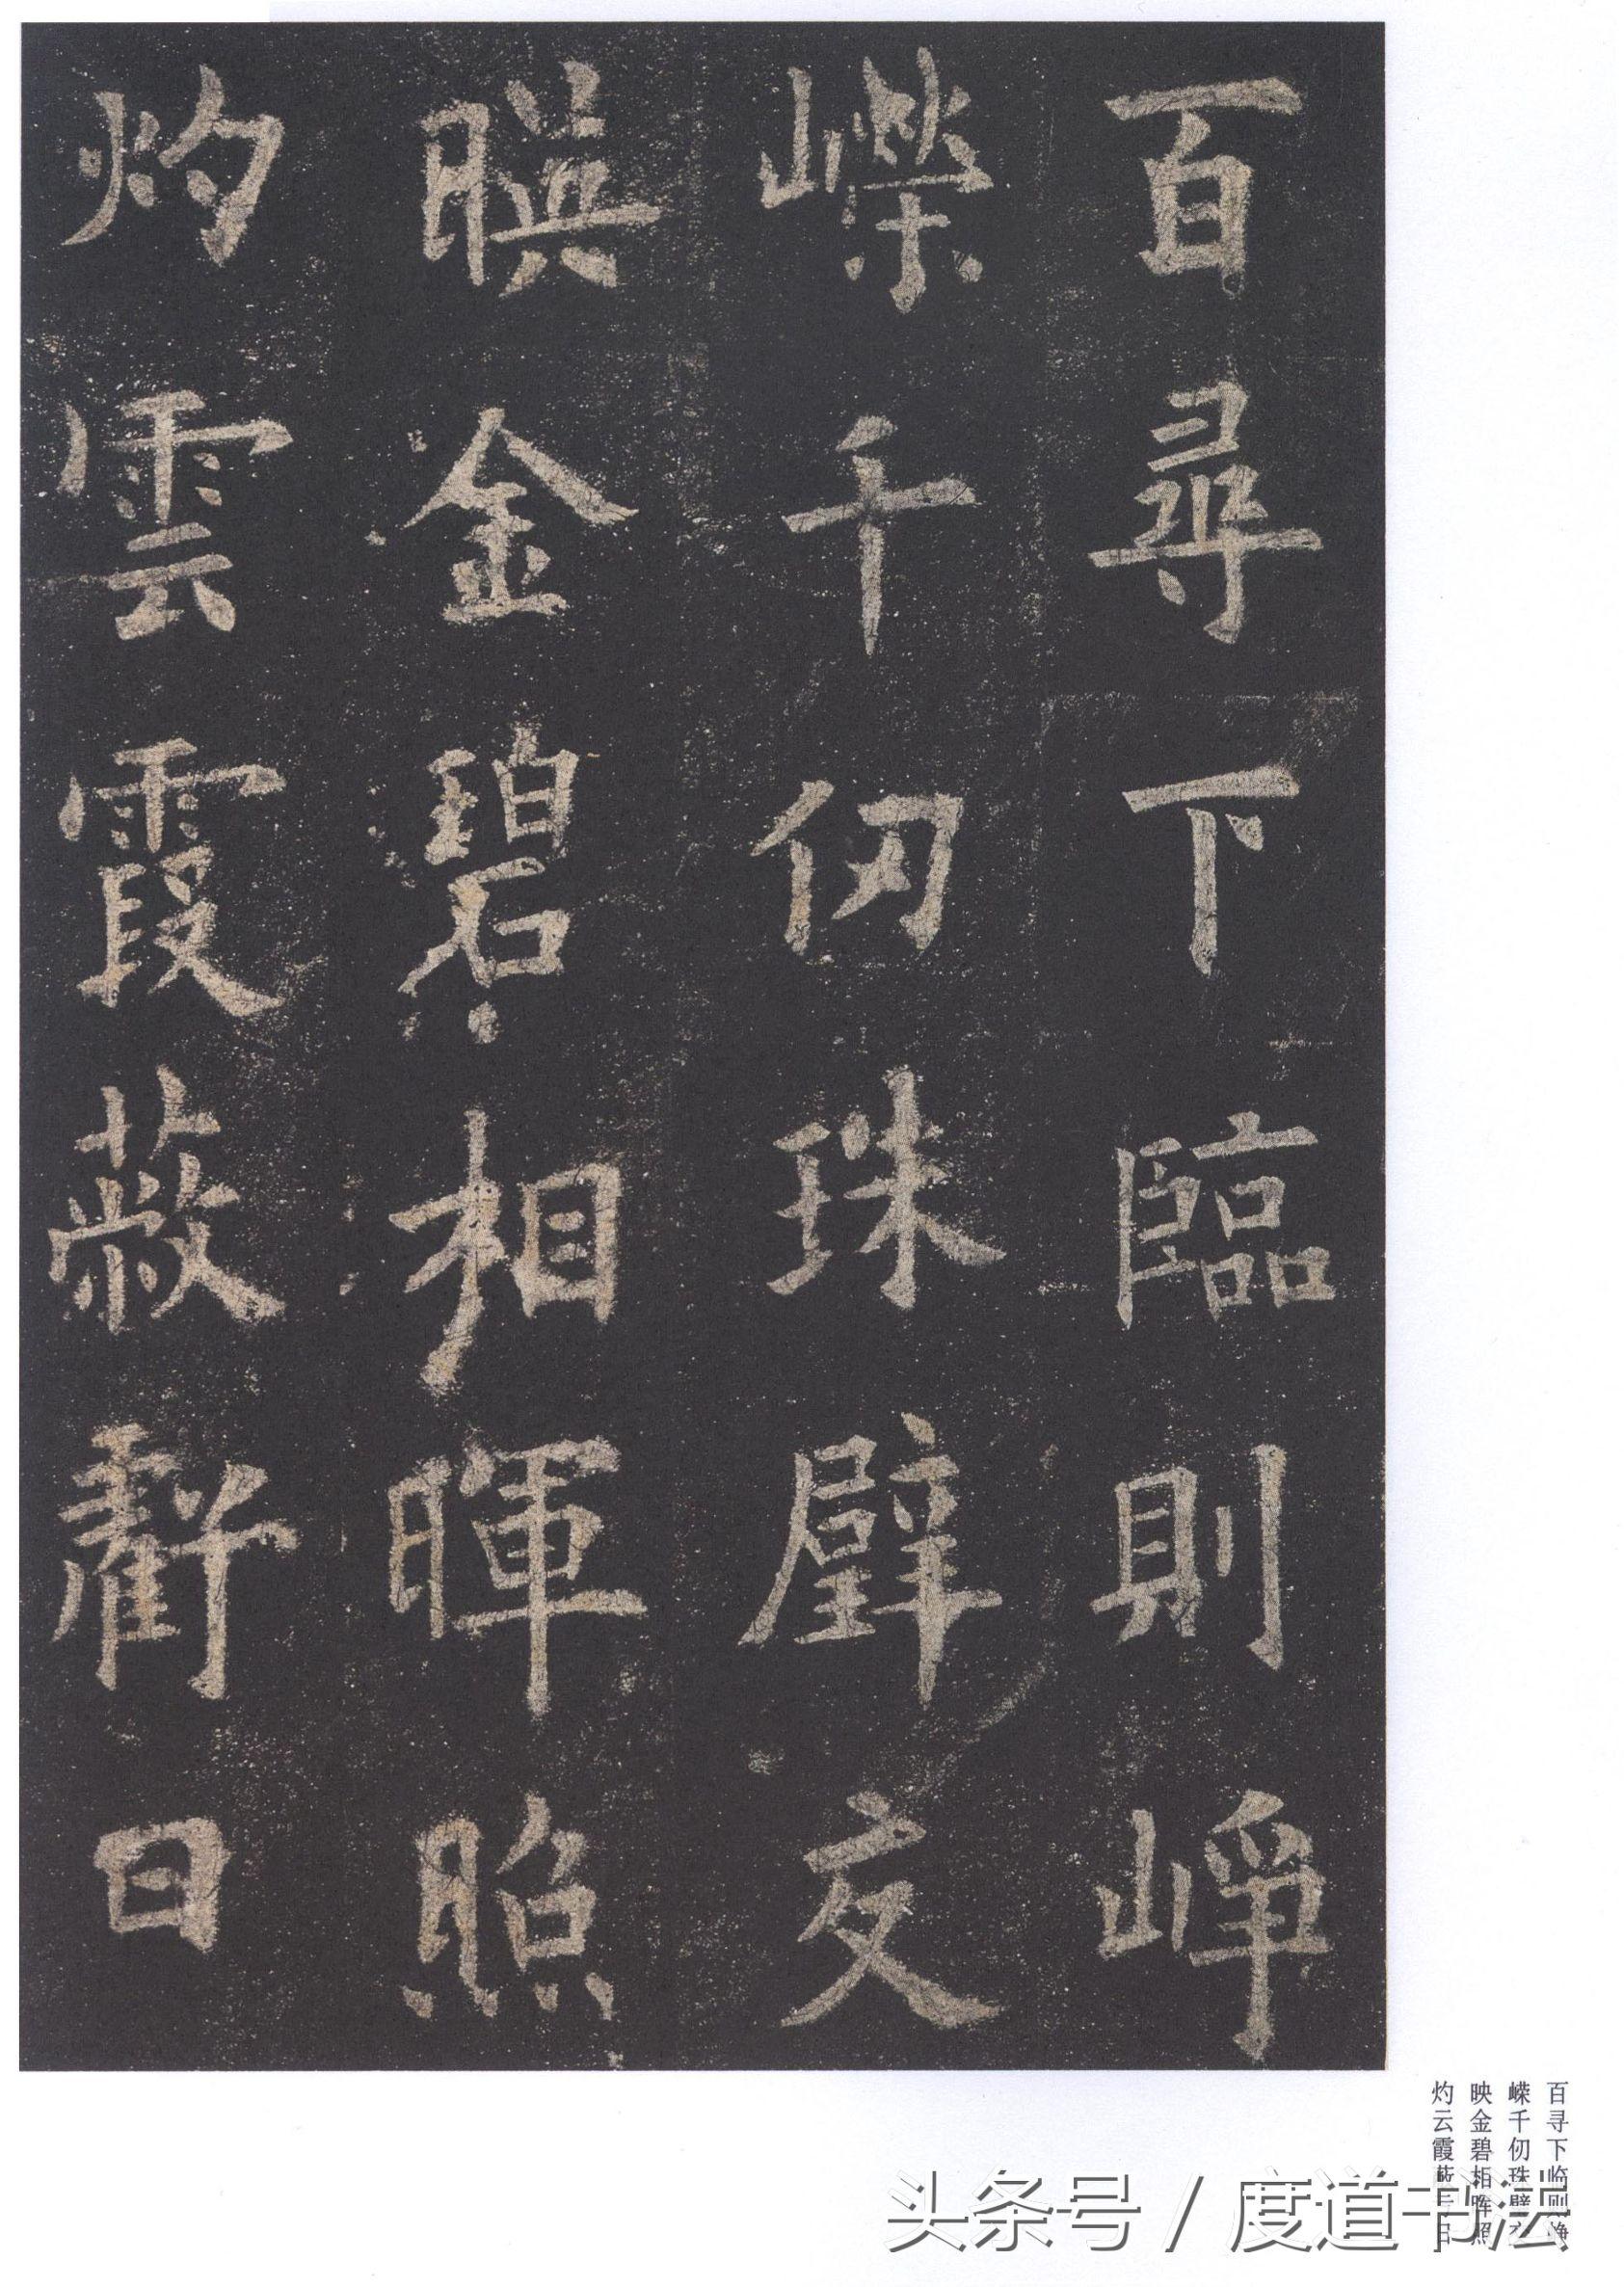 百尋下臨則崢
嶸千仞珠璧交
暎金碧相暉照
灼雲霞蔽虧日
百寻下临则峥
嵘千仞珠璧交
映金碧相晖照
灼云霞蔽亏日
头条号 / 度道书法